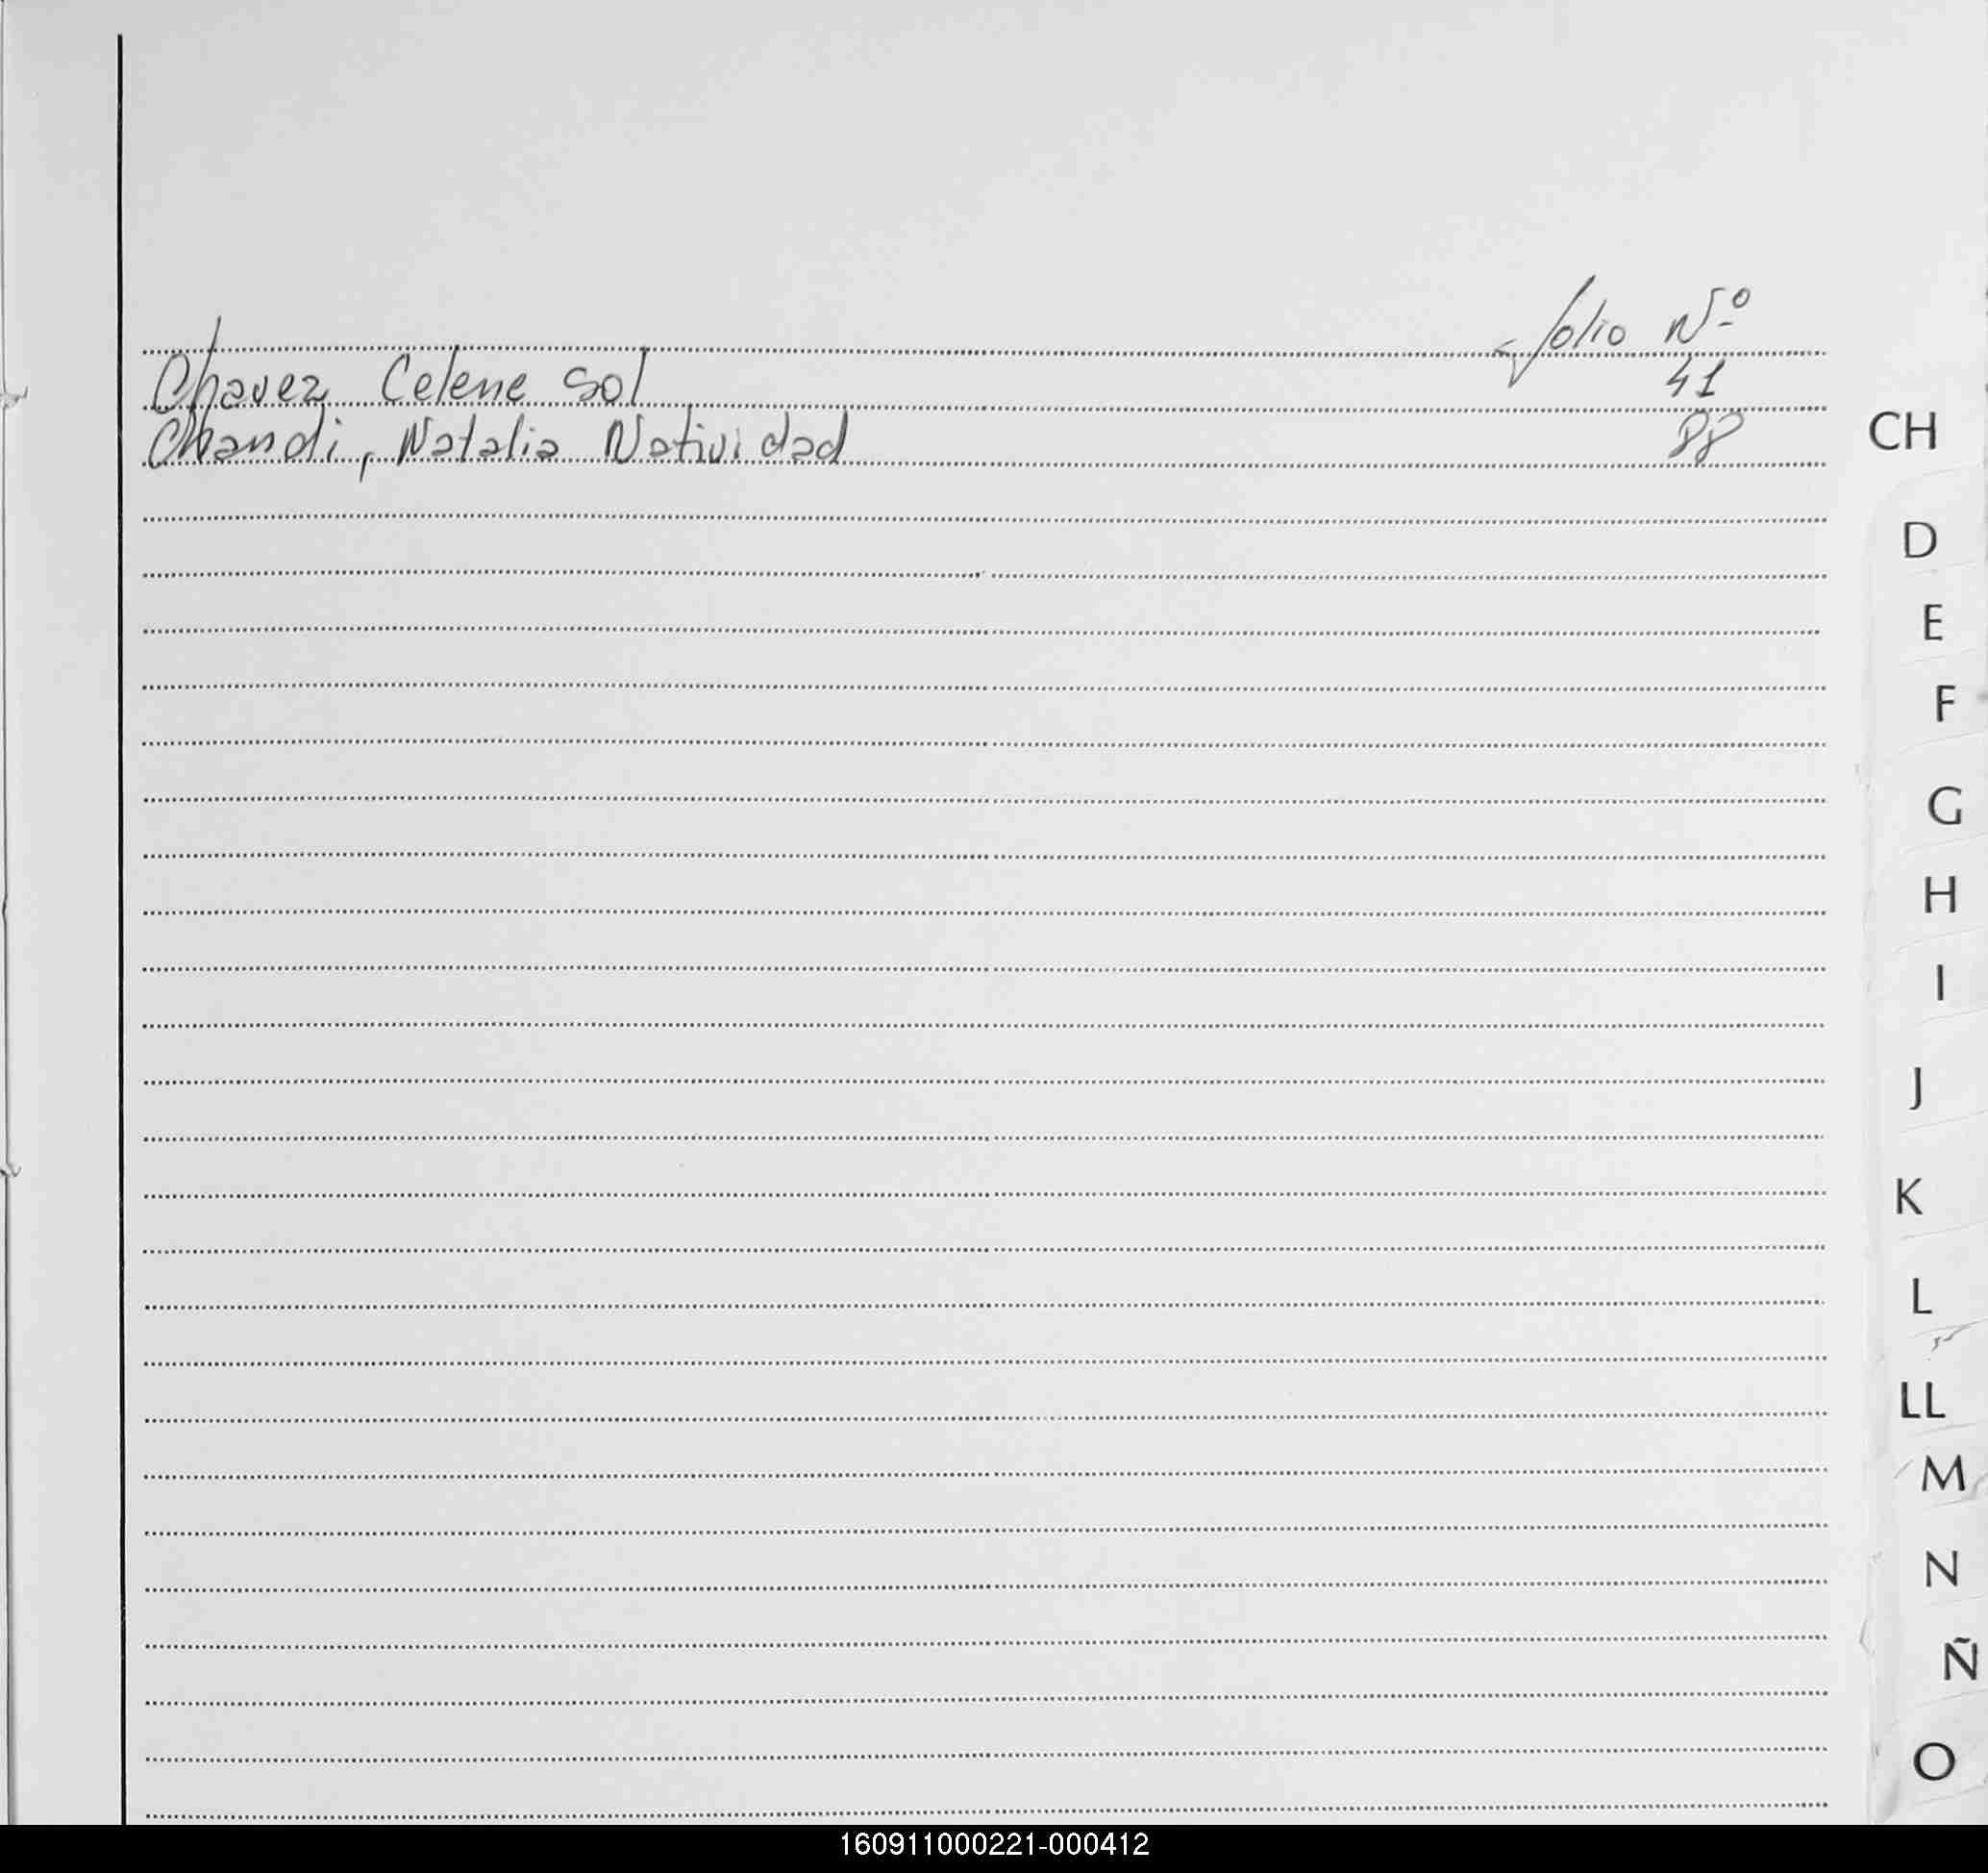 folio Nº
Chavez Celene Sol 41
Chandi, Natalia Natividad 88
CH
D
E
F
G
H
I
J
K
L
LL
M
N
Ñ
O
160911000221-000412